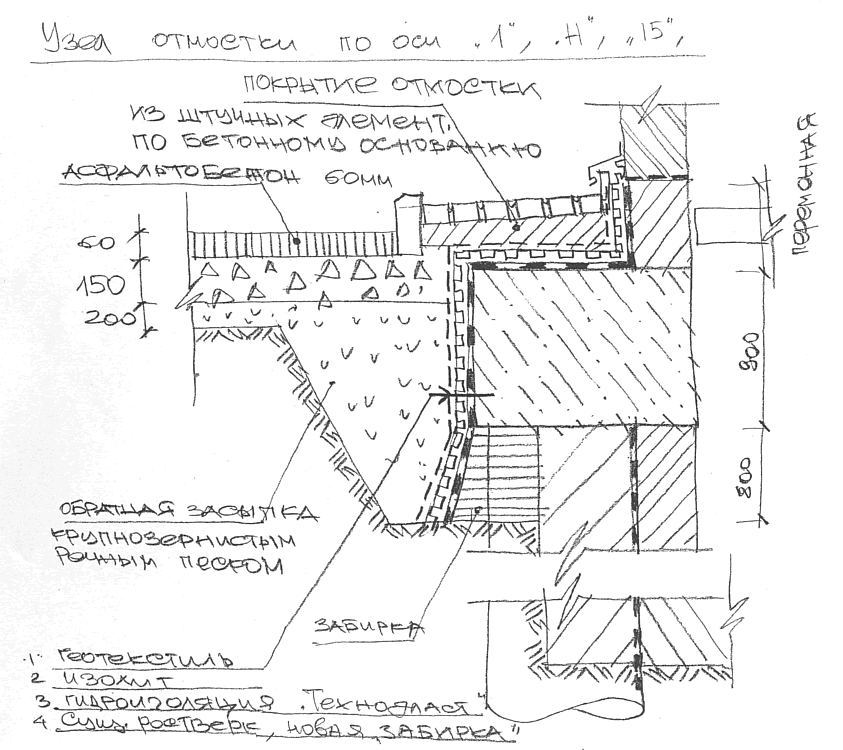 Узел отмостки по оси „1“, „Н“, „15“,
ПОКРЫТИЕ ОТМОСТКИ
ИЗ ШТУЧНЫХ ЭЛЕМЕНТ.
ПО БЕТОННОМУ ОСНОВАНИЮ
АСФАЛЬТОБЕТОН 60мм
60
150
200
ПЕРЕМОННАЯ
900
800
ОБРАТНАЯ ЗАСЫПКА
КРУПНОЗЕРНИСТЫМ
РЕЧНЫМ ПЕСКОМ
ЗАБИРКА
1 ГЕОТЕКСТИЛЬ
2 ИЗОХИТ
3 ГИДРОИЗОЛЯЦИЯ „Техноэласт“
4 Сущ. РОСТВЕРК, НОВАЯ „ЗАБИРКА“